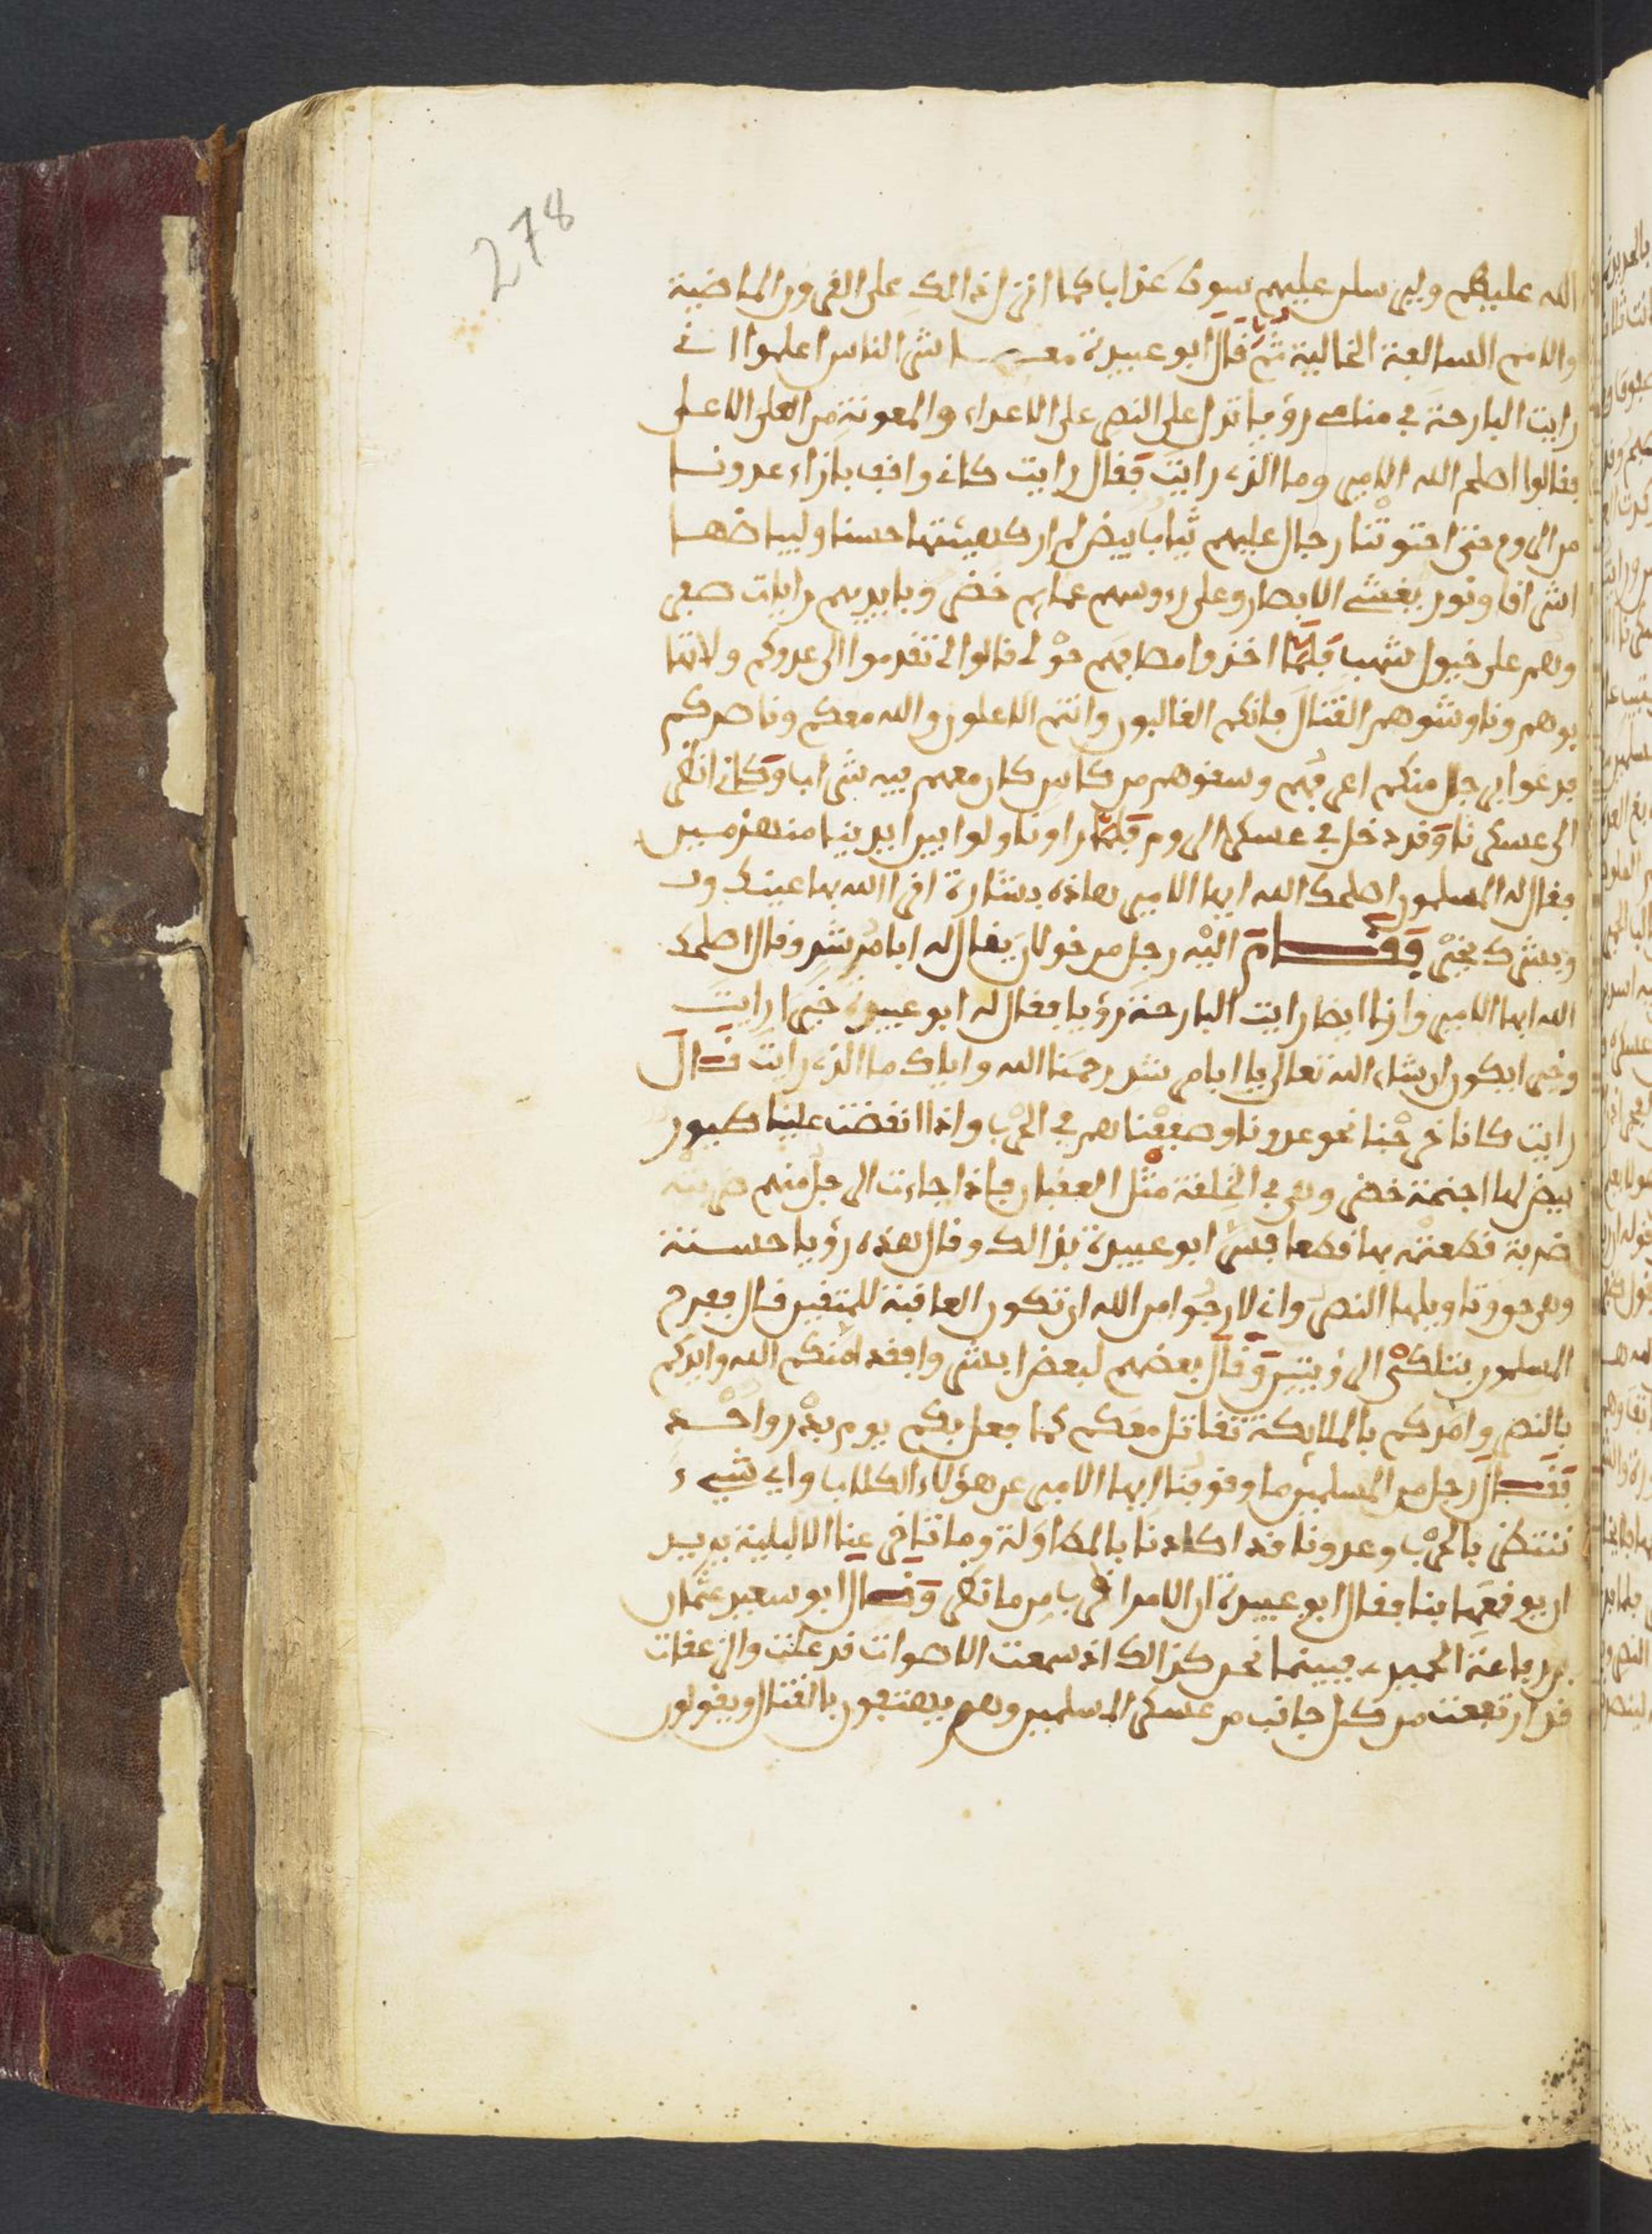 278
الله عليكم وليرسلن عليهم سوط عذاب كما انزل ذالك على القرون الماضية
والامم السالفة الخالية ثم قال ابو عبيدة معــشر الناس اعلموا اني
رايت البارحة في منامي رؤيا تدل على النصر على الاعداء والمعونة من العلي الاعلى
فقالوا اصلح الله الامير وما الذي رايت فقال رايت كاني واقف بازاء عدونا
من الروم حتى احتوتنا رجال عليهم ثياب بيض لم ار كهيئتها حسنا ولبياضها
اشراقا ونور يغشي الابصار وعلى رءوسهم عمايم خضر وبايديهم رايات صفر
وهم على خيول شهب فلما اخذوا مصافهم حولي قالوا لي تقدموا الى عدوكم ولا تها
بوهم وناوشوهم القتال فانكم الغالبون وانتم الاعلون والله معكم وناصركم
فدعوا برجل منكم اعرفهم وسقوهم من كاس كان معهم فيه شراب وكاني انظر
الى عسكرنا وقد دخل في عسكر الروم فلما راونا ولوا بين ايدينا منهزمين
فقال له المسلمون اصلحك الله ايها الامير هاذه بشارة اقر الله بها عينك و
وبشرك بخير فقــام اليه رجل من خولان يقال له ابا مرشد وقال اصلحك
الله ايها الامير وانا ايضا رايت البارحة رؤيا فقال له ابو عبيدة خيرا رايت
وخيرا يكون ان شاء الله تعالى يا ابا مرشد رحمنا الله واياك ما الذي رايت قــال
رايت كانا خرجنا نحو عدونا وصففنا لهم في الحرب واذا انقضت عليها طيور
بيض لها اجنحة خضر وهي في الخلقة مثل العقبان فاذا جاءت الرجل منهم ضربته
ضربة قطعته بها قطعا فسر ابو عبيدة بذالك وقال هذه رؤيا حســنة
وهي حق وتاويلها النصر واني لارجوا من الله ان تكون العاقبة للمتقين قال ففرح
المسلمون بتلك الرؤيتين وقال بعضهم لبعض ابشروا فقد امنكم الله وايدكم
بالنصر وامدكم بالملايكة تقاتل معكم كما فعل بكم يوم بدر واحــد
فقــال رجل من المسلمين ما وقوفنا ايها الامير عن هؤلاء الكلاب واي شيء
ننتظر بالحرب وعدونا قد اكادنا بالمطاولة وما تاخر عنا الا لبلية يريــد
ان يوقعها بنا فقال ابو عبيدة ان الامر اقرب من ما تظن وقــال ابو سعيد عثمان
بن رفاعة الحميري فبينما نحن كذالك اذ سمعت الاصوات قد علت والزعقات
قد ارتفعت من كل جانب من عسكر المسلمين وهم يهتفون بالقتال ويقولون